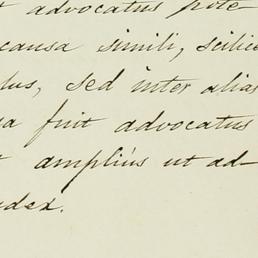 t advocatus pote
causa simili, scilice
tus, sed inter alias
a fuit advocatus
t amplius ut ad-
udex.